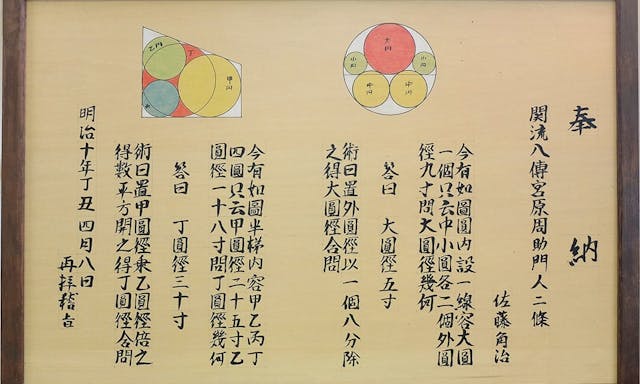 奉納
関流八傳宮原周助門人二條
佐藤角治
大円
小円
小円
中円
中円
今有如圖圓内設一線容大圓
一個只云中小圓各二個外圓
徑九寸問大圓徑幾何
答曰 大圓徑五寸
術曰置外圓徑以一個八分除
之得大圓徑合問
乙円
丁
甲円
今有如圖半梯内容甲乙丙丁
四圓只云甲圓徑二十五寸乙
圓徑一十八寸問丁圓徑幾何
答曰 丁圓徑三十寸
術曰置甲圓徑乗乙圓徑倍之
得數平方開之得丁圓徑合問
明治十年丁丑四月八日
再拝稽首